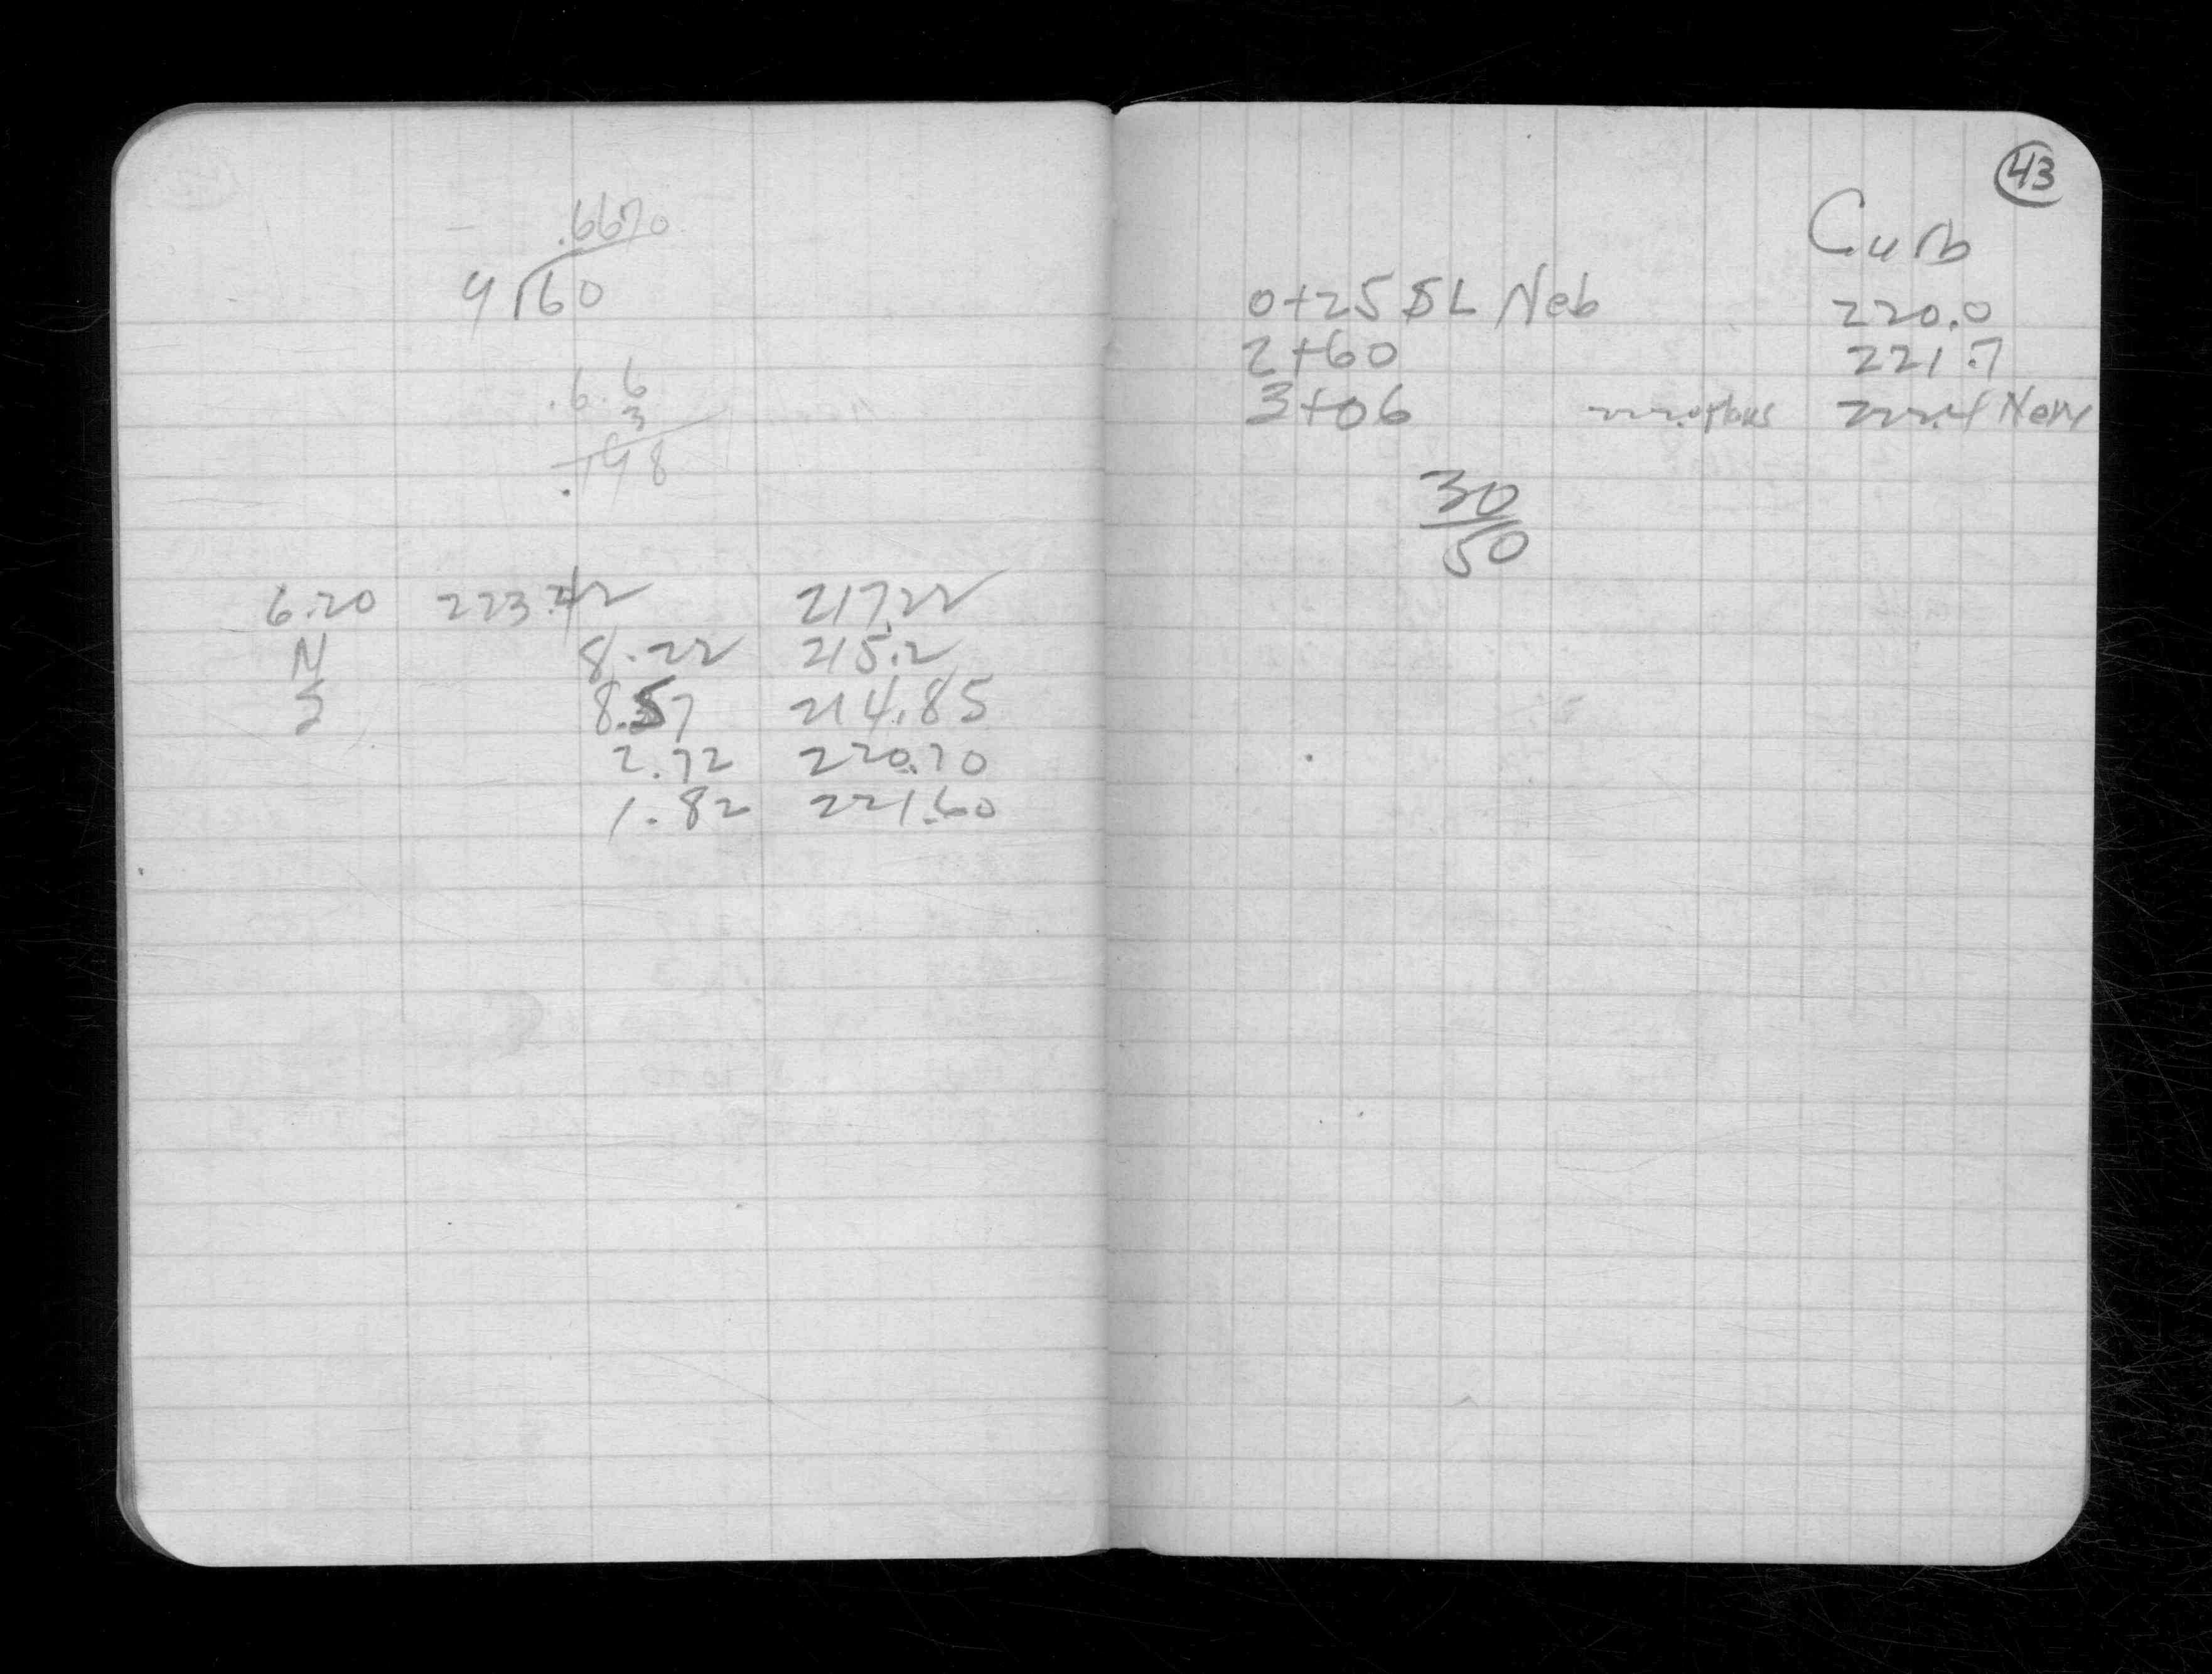 .6670
9 √60
.6.6
3
.198
6.20 223.42 217.22
N 8.22 215.2
S 8.57 214.85
2.72 220.70
1.82 221.60
43
Curb
0+25 SL Neb 220.0
2+60 221.7
3+06 222.0 222.4 New
30
50